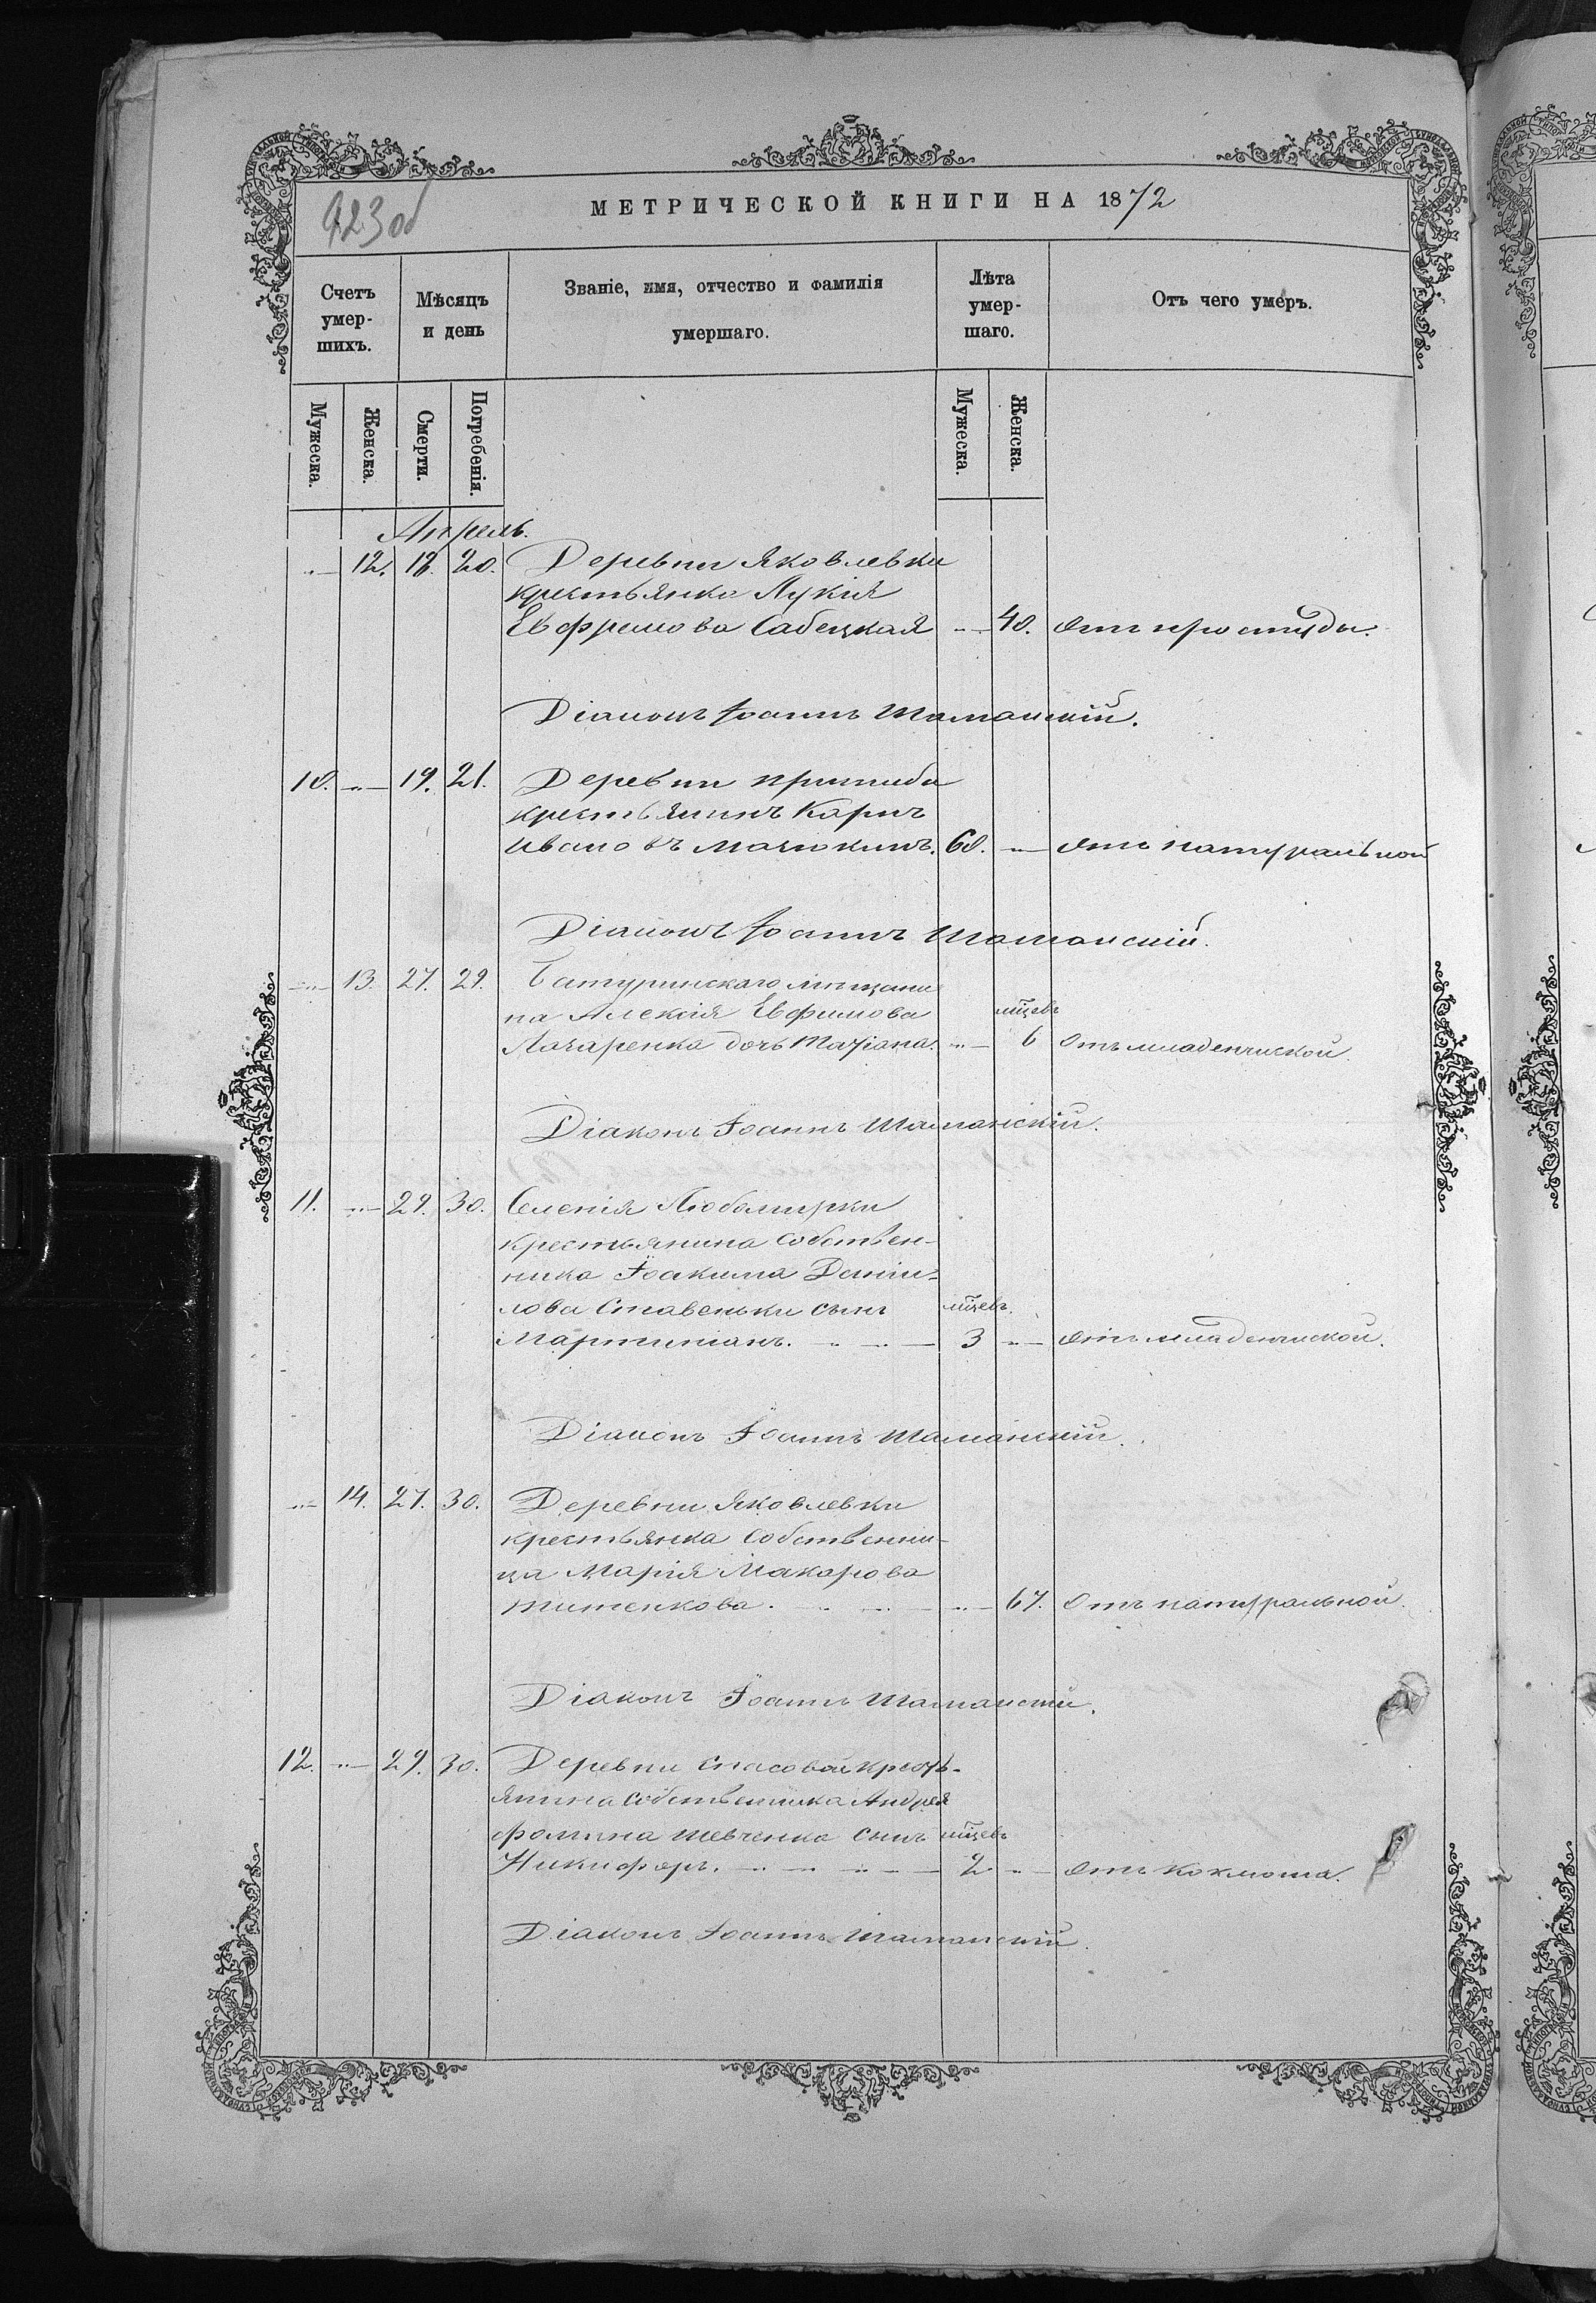 923об
МЕТРИЧЕСКОЙ КНИГИ НА 1872
Счетъ умер-шихъ.
Мѣсяцъ и день
Званіе, имя, отчество и фамилія умершаго.
Лѣта умер-шаго.
Отъ чего умеръ.
Мужеска.
Женска.
Смерти.
Погребенія.
Мужеска.
Женска.
Апрель.
12. 18. 20. Деревни Яковлевки
крестьянка Лукія
Евфремова Сабецкая 40. отъ простуды.
Діаконъ Іоаннъ Шаманскій.
10. 19. 21. Деревни пришиба
крестьянинъ Карпъ
Ивановъ Мачюкинъ. 60. отъ натуральной
Діаконъ Іоаннъ Шаманскій.
13. 27. 29. Батуринскаго мѣщани
на Алексія Евфимова мѣцевъ
Лазаренка дочь Татіана. 6 Отъ младенческой.
Діаконъ Іоаннъ Шаманскій.
11. 29. 30. Селенія Любомирки
крестьянина собствен-
ника Іоакима Даніи-
лова Ставеньки сынъ мѣцевъ.
Мартиніанъ. 3 отъ младенческой.
Діаконъ Іоаннъ Шаманскій.
14. 27. 30. Деревни Яковлевки
крестьянка собственни-
ца Марія Макарова
Титенкова. 67. Отъ натуральной.
Діаконъ Іоаннъ Шаманскій.
12. 29. 30. Деревни Спасовой кресть-
янина собственника Андрея
Фомина Шевченка сынъ мѣцевъ
Никифоръ. 2 отъ коклюша.
Діаконъ Іоаннъ Шаманскій.